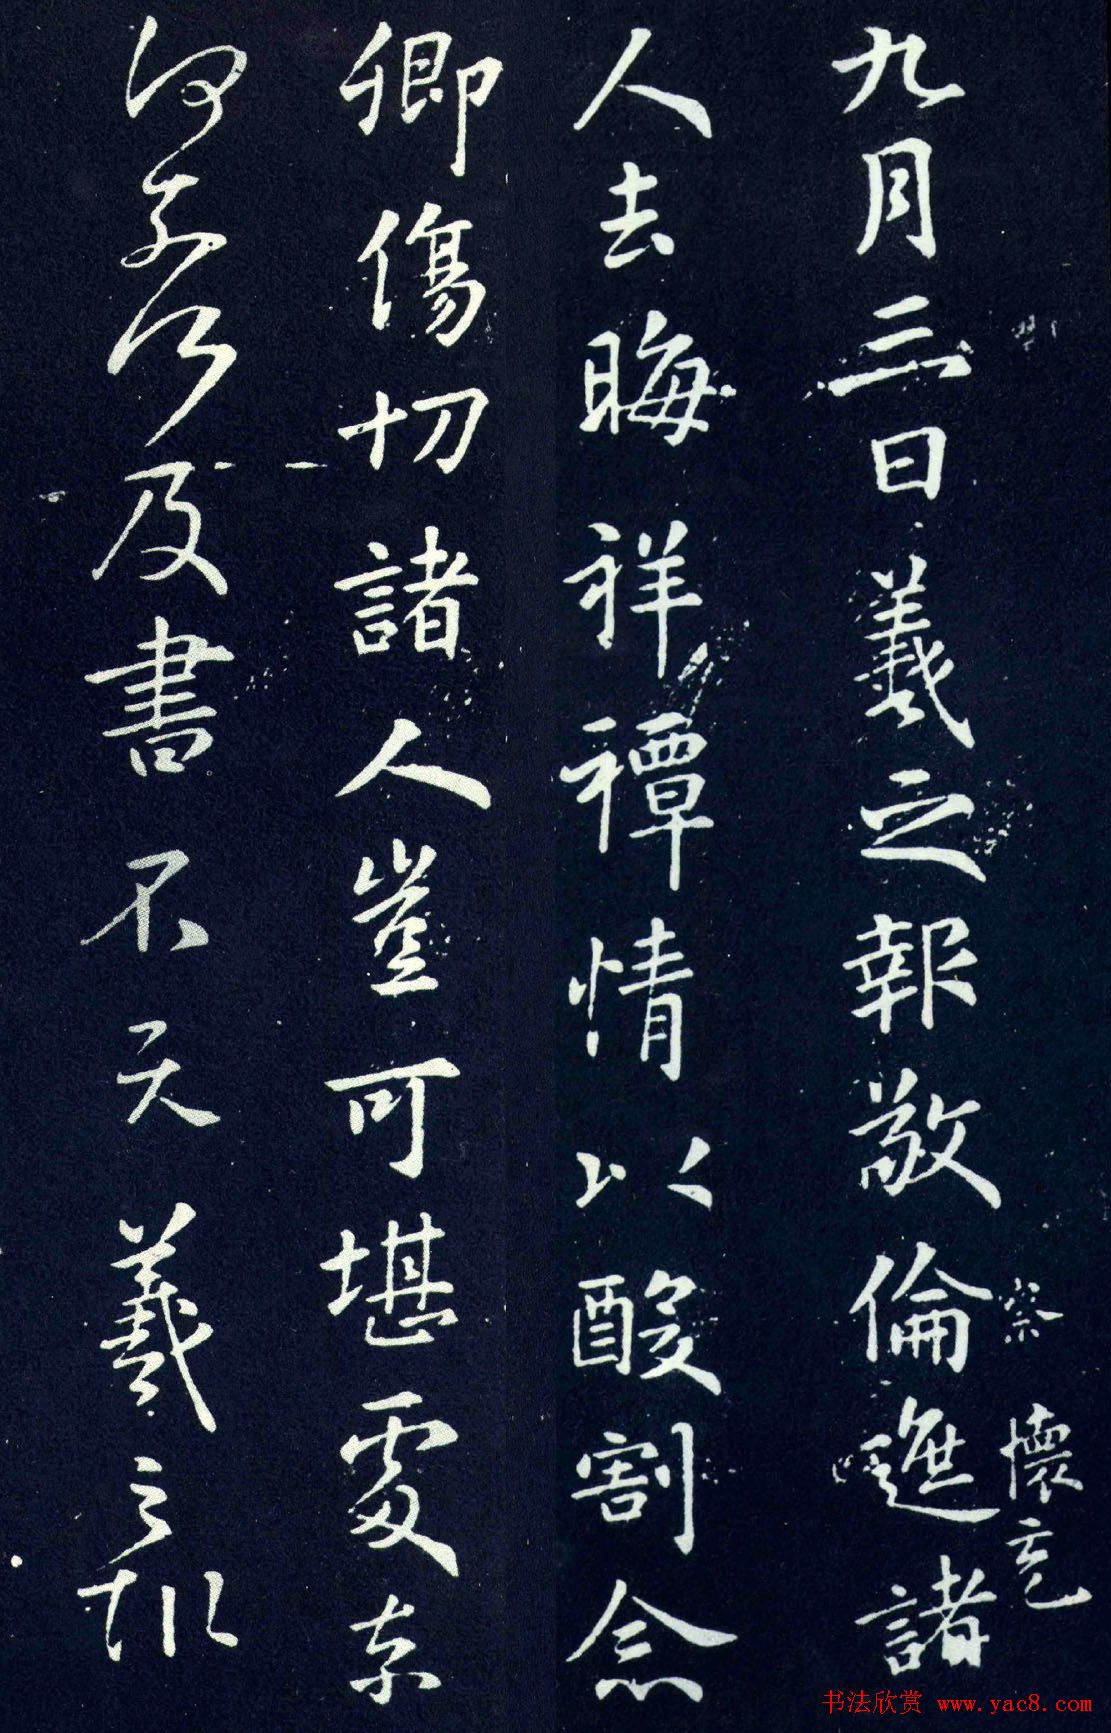 九月三日羲之報敬倫遮諸
察懷充
人去晦祥禫情以酸割念
卿傷切諸人豈可堪處奈
何奈何及書不次羲之報
书法欣赏 www.yac8.com